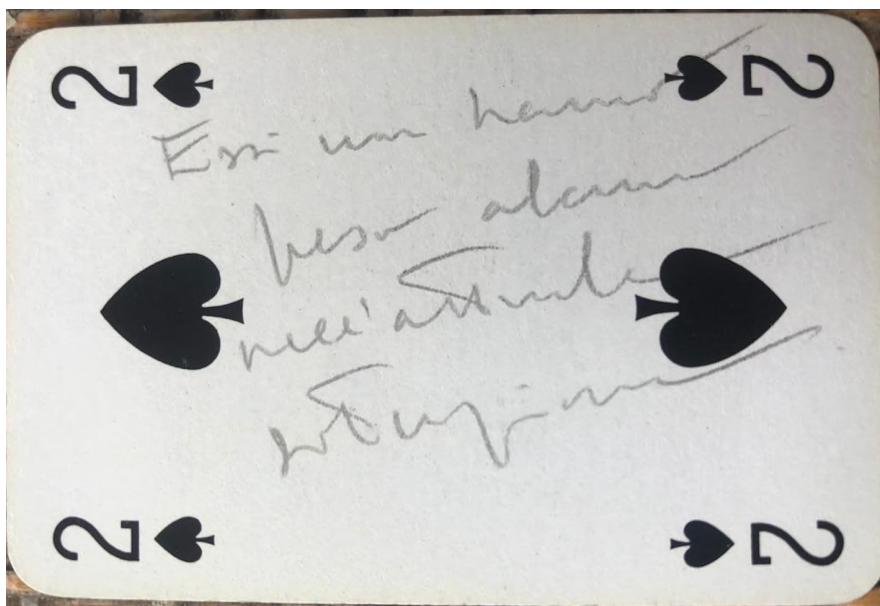 2 2
Essi non hanno
peso alcuno
nell'attuale
situazione
2 2